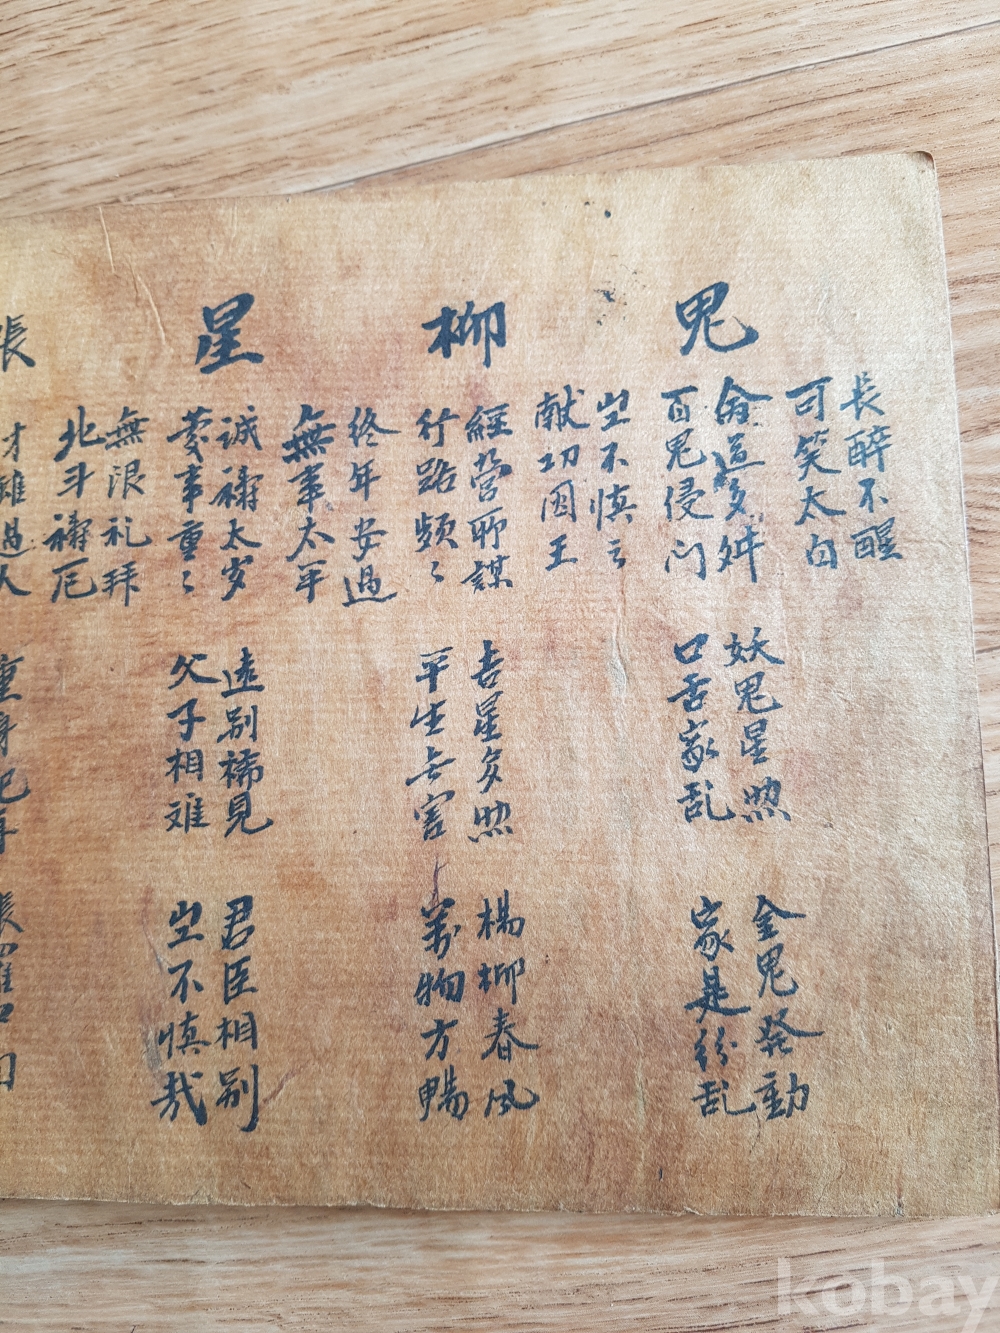 長醉不醒
可笑太白
鬼
百鬼侵门
妖鬼星照
口舌家乱
金鬼發動
家是紛乱
岂不慎云
献功国王
柳
經营所謀
行路頻〻
吉星多照
平生无害
楊柳春风
萬物方暢
終年安過
無事太平
星
诚禱太岁
事重〻
遠别稀見
父子相难
君臣相别
岂不慎哉
無限礼拜
北斗禱厄
張
才雖過人
kobay